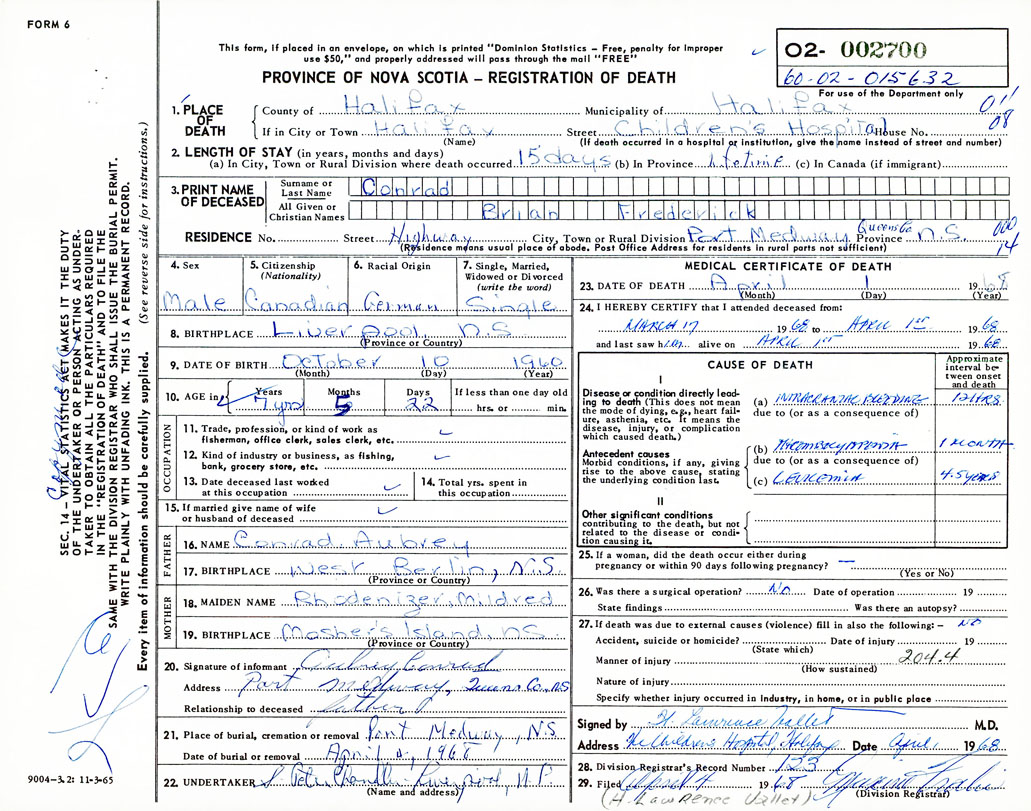 FORM 6
This form, if placed in an envelope, on which is printed "Dominion Statistics – Free, penalty for improper
use $50," and properly addressed will pass through the mail "FREE"
O2- 002700
60-02-015632
For use of the Department only
PROVINCE OF NOVA SCOTIA – REGISTRATION OF DEATH
1. PLACE OF DEATH
County of Halifax Municipality of Halifax 011
If in City or Town Halifax Street Children's Hospital House No. 08
(Name) (If death occurred in a hospital or institution, give the name instead of street and number)
2. LENGTH OF STAY (in years, months and days)
(a) In City, Town or Rural Division where death occurred 15 days (b) In Province Lifetime (c) In Canada (if immigrant)
3. PRINT NAME OF DECEASED
Surname or Last Name Conrad
All Given or Christian Names Brian Frederick
RESIDENCE No. Street Highway City, Town or Rural Division Port Medway Queens Co. Province N.S. 000
(Residence means usual place of abode. Post Office Address for residents in rural parts not sufficient) 14
4. Sex
Male
5. Citizenship (Nationality)
Canadian
6. Racial Origin
German
7. Single, Married, Widowed or Divorced (write the word)
Single
8. BIRTHPLACE Liverpool, N.S.
(Province or Country)
9. DATE OF BIRTH October 10 1960
(Month) (Day) (Year)
10. AGE in Years Months Days If less than one day old
7 yrs 5 22 hrs. or min.
OCCUPATION
11. Trade, profession, or kind of work as
fisherman, office clerk, sales clerk, etc.
12. Kind of industry or business, as fishing,
bank, grocery store, etc.
13. Date deceased last worked at this occupation
14. Total yrs. spent in this occupation
15. If married give name of wife
or husband of deceased
FATHER
16. NAME Conrad, Aubrey
17. BIRTHPLACE West Berlin, N.S.
(Province or Country)
MOTHER
18. MAIDEN NAME Rhodenizer, Mildred
19. BIRTHPLACE Mosher's Island, N.S.
(Province or Country)
20. Signature of informant Aubrey Conrad
Address Port Medway, Queens Co. N.S.
Relationship to deceased father
21. Place of burial, cremation or removal Port Medway, N.S.
Date of burial or removal April 4, 1968
22. UNDERTAKER
(Name and address)
MEDICAL CERTIFICATE OF DEATH
23. DATE OF DEATH April 1 1968
(Month) (Day) (Year)
24. I HEREBY CERTIFY that I attended deceased from:
MARCH 17 1968 to APRIL 1st 1968
and last saw him alive on APRIL 1st 1968
CAUSE OF DEATH
Approximate interval between onset and death
I
Disease or condition directly leading to death (This does not mean the mode of dying, e.g., heart failure, asthenia, etc. It means the disease, injury, or complication which caused death.)
(a) INTRACRANIAL BLEEDING 12 HRS
due to (or as a consequence of)
Antecedent causes
Morbid conditions, if any, giving rise to the above cause, stating the underlying condition last.
(b) THROMBOCYTOPENIA 1 MONTH
due to (or as a consequence of)
(c) LEUKEMIA 4.5 years
II
Other significant conditions contributing to the death, but not related to the disease or condition causing it.
25. If a woman, did the death occur either during
pregnancy or within 90 days following pregnancy? –
(Yes or No)
26. Was there a surgical operation? No Date of operation 19
State findings Was there an autopsy?
27. If death was due to external causes (violence) fill in also the following: – No
Accident, suicide or homicide? Date of injury 19
(State which)
Manner of injury 204.4
(How sustained)
Nature of injury
Specify whether injury occurred in industry, in home, or in public place
Signed by H. Lawrence Vallet M.D.
Address The Children's Hospital, Halifax Date April 1968
28. Division Registrar's Record Number 123
29. Filed April 4 1968
(Division Registrar)
(H. Lawrence Vallet)
SEC. 14 – VITAL STATISTICS ACT (MAKES IT THE DUTY
OF THE UNDERTAKER OR PERSON ACTING AS UNDER-
TAKER TO OBTAIN ALL THE PARTICULARS REQUIRED
IN THE "REGISTRATION OF DEATH" AND TO FILE THE
SAME WITH THE DIVISION REGISTRAR WHO SHALL ISSUE THE BURIAL PERMIT.
WRITE PLAINLY WITH UNFADING INK. THIS IS A PERMANENT RECORD.
Every item of information should be carefully supplied. (See reverse side for instructions.)
9004-3.2: 11-3-65